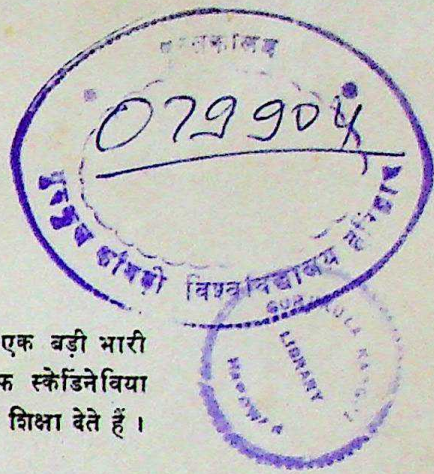 पुस्तकालय
079904
गुरुकुल काँगड़ी विश्वविद्यालय हरिद्वार
GURUKULA KANGRI
LIBRARY
HARDWAR
एक बड़ी भारी
स्केडिनेविया
शिक्षा देते हैं ।